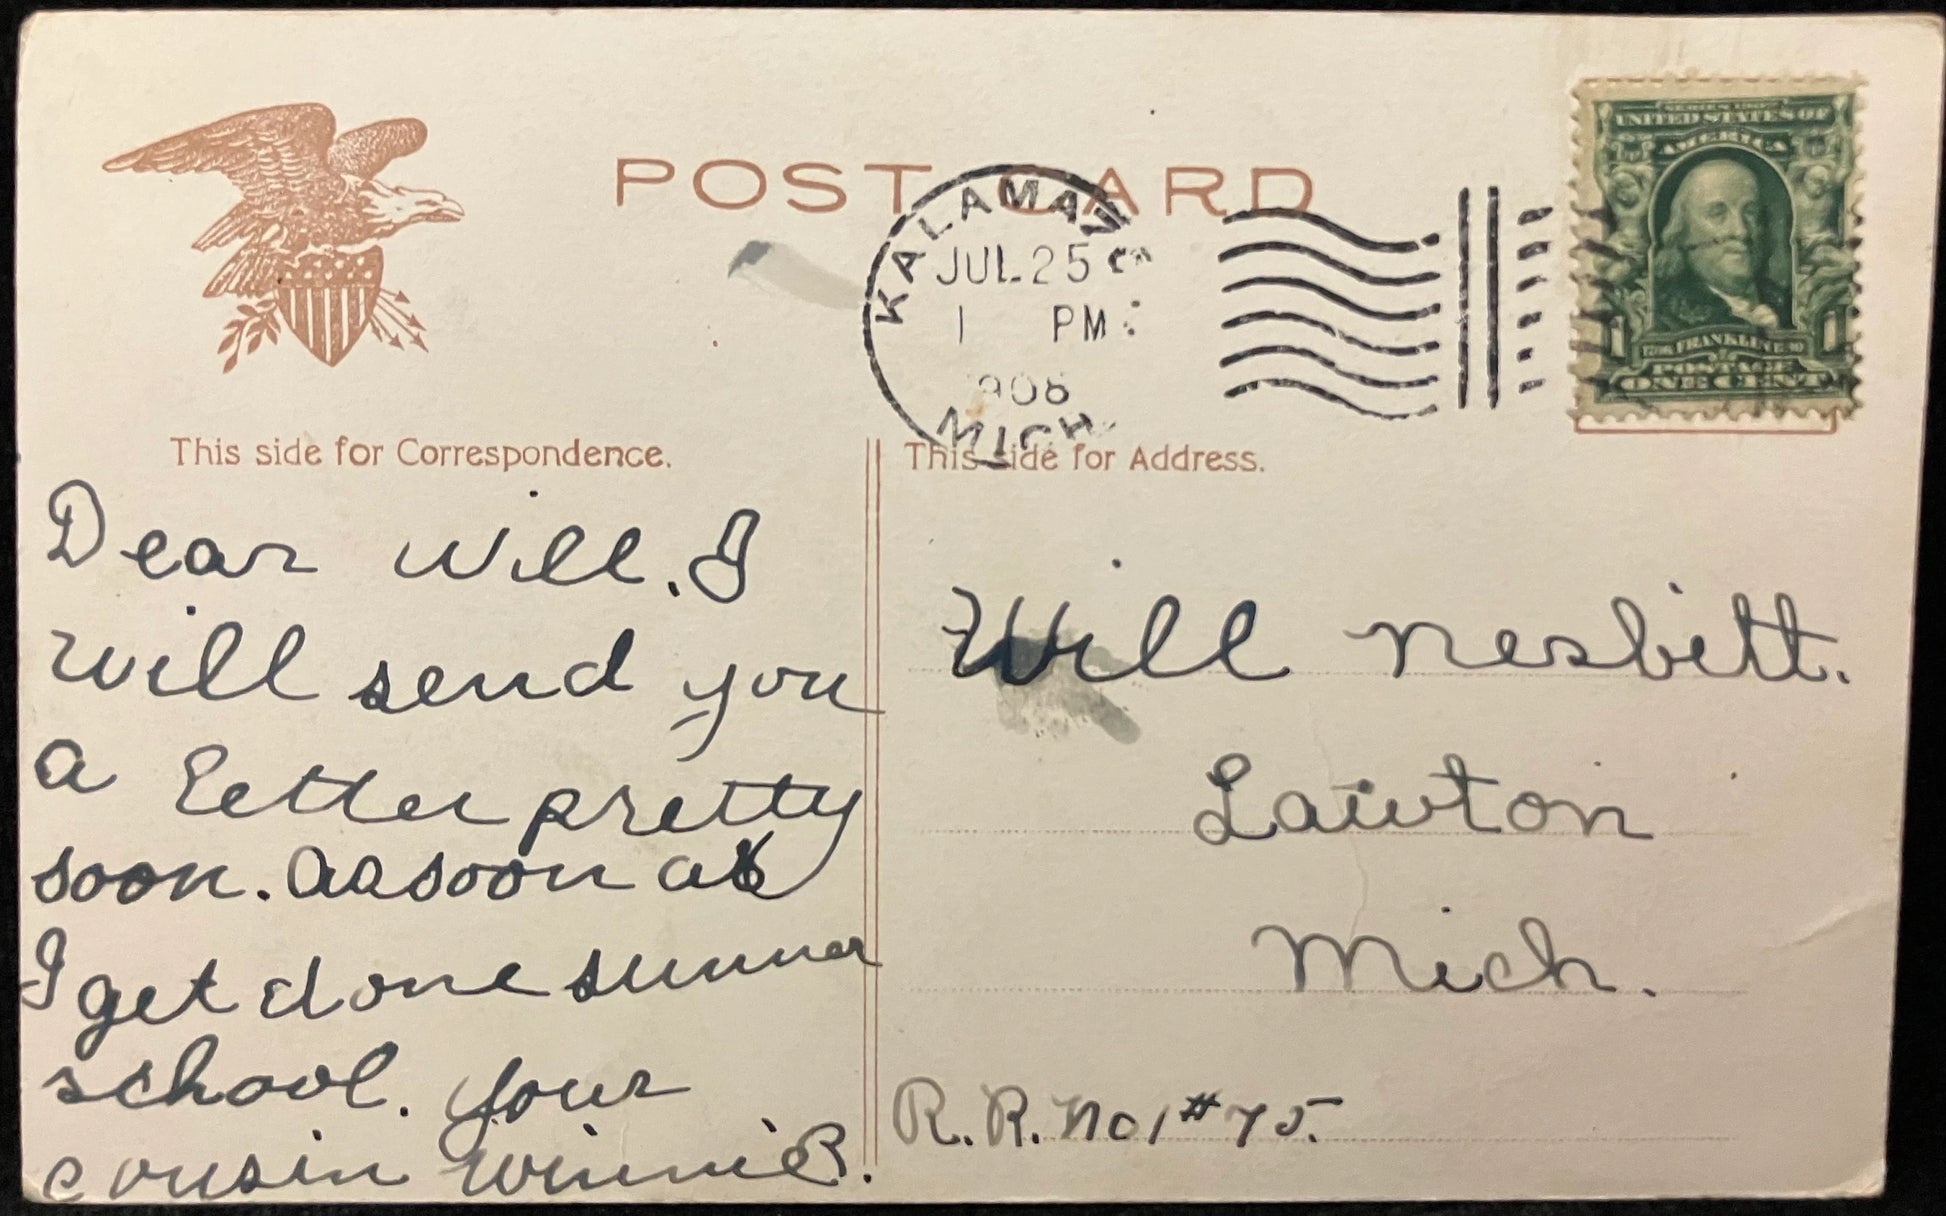 POST CARD
KALAMAZOO
JUL 25
1 PM
1908
MICH
SERIES 1902
UNITED STATES OF
AMERICA
1706 FRANKLIN 1790
1 1
POSTAGE
ONE CENT
This side for Correspondence.
This side for Address.
Dear Will. I
will send you
a letter pretty
soon. As soon as
I get done summer
school. Your
cousin Winnie R.
Will Nesbitt.
Lawton
Mich.
R. R. No 1 # 75.